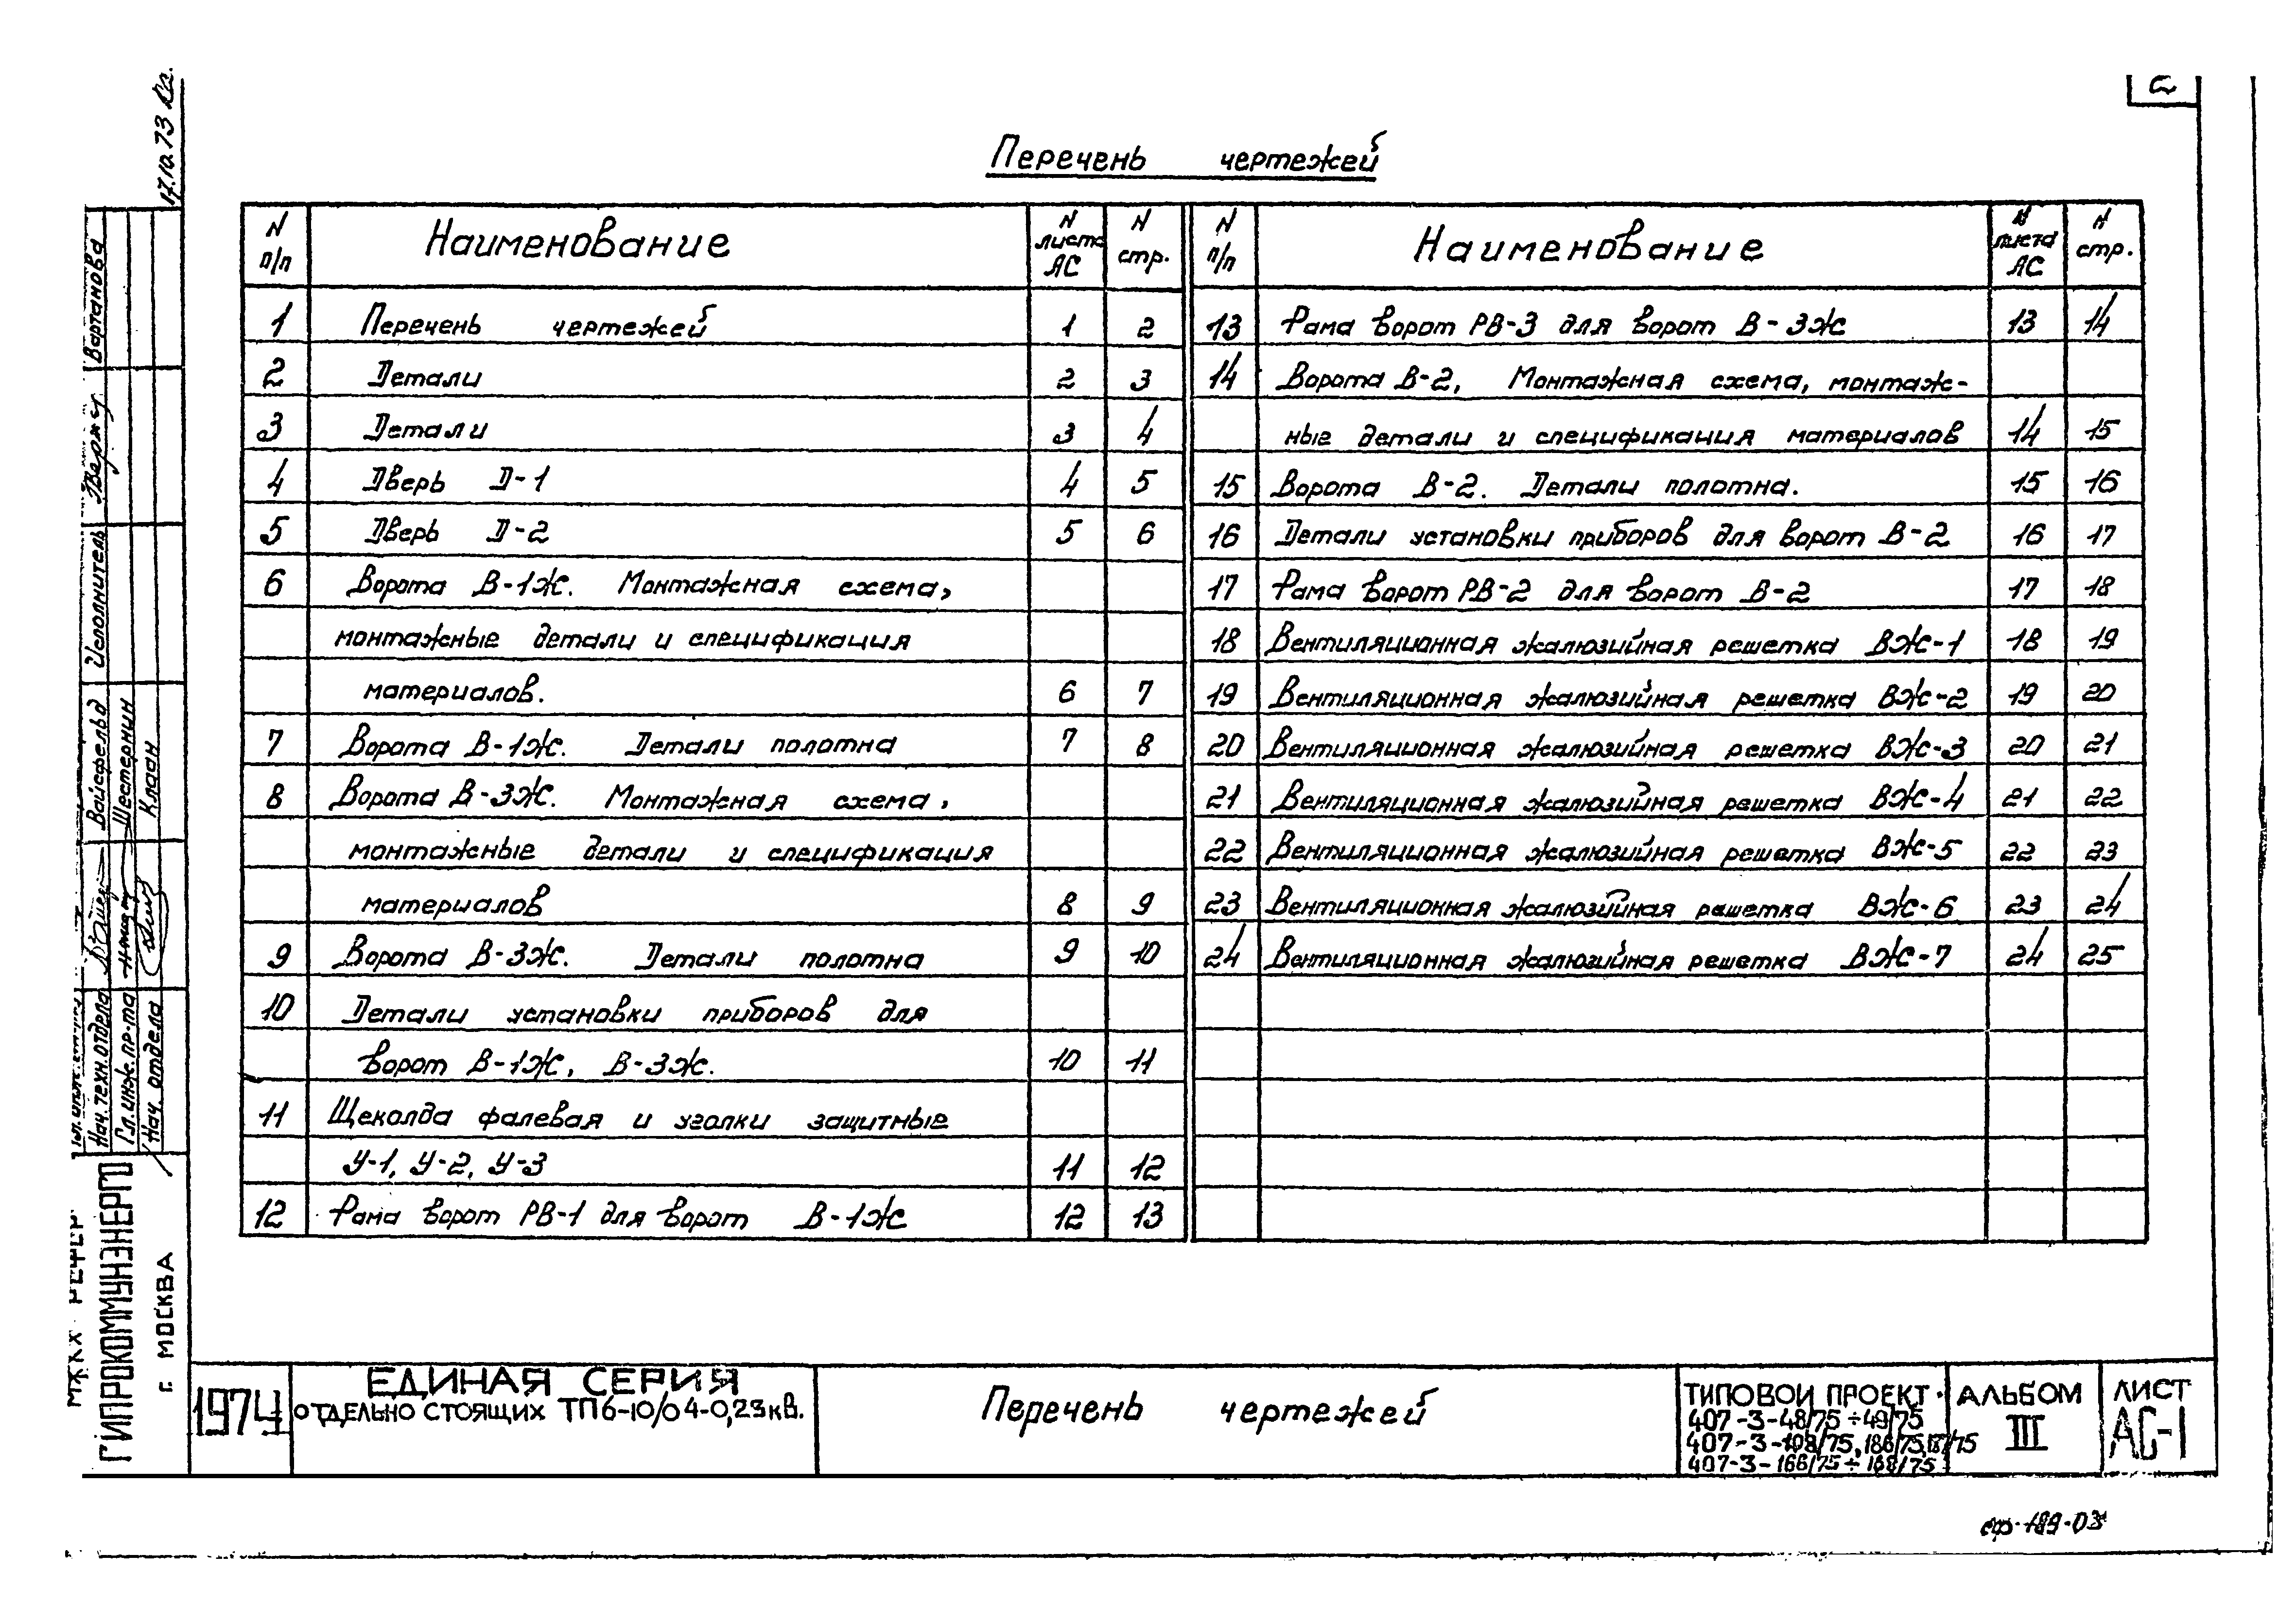 2
Перечень чертежей
N п/п Наименование N листа АС N стр.
1 Перечень чертежей 1 2
2 Детали 2 3
3 Детали 3 4
4 Дверь Д-1 4 5
5 Дверь Д-2 5 6
6 Ворота В-1Ж. Монтажная схема,
монтажные детали и спецификация
материалов. 6 7
7 Ворота В-1Ж. Детали полотна 7 8
8 Ворота В-3Ж. Монтажная схема,
монтажные детали и спецификация
материалов 8 9
9 Ворота В-3Ж. Детали полотна 9 10
10 Детали установки приборов для
ворот В-1Ж, В-3Ж. 10 11
11 Щеколда фалевая и уголки защитные
У-1, У-2, У-3 11 12
12 Рама ворот РВ-1 для ворот В-1Ж 12 13
N п/п Наименование N листа АС N стр.
13 Рама ворот РВ-3 для ворот В-3Ж 13 14
14 Ворота В-2, Монтажная схема, монтаж-
ные детали и спецификация материалов 14 15
15 Ворота В-2. Детали полотна. 15 16
16 Детали установки приборов для ворот В-2 16 17
17 Рама ворот РВ-2 для ворот В-2 17 18
18 Вентиляционная жалюзийная решетка ВЖ-1 18 19
19 Вентиляционная жалюзийная решетка ВЖ-2 19 20
20 Вентиляционная жалюзийная решетка ВЖ-3 20 21
21 Вентиляционная жалюзийная решетка ВЖ-4 21 22
22 Вентиляционная жалюзийная решетка ВЖ-5 22 23
23 Вентиляционная жалюзийная решетка ВЖ-6 23 24
24 Вентиляционная жалюзийная решетка ВЖ-7 24 25
17.10.73
Исполнитель Вартанова
Нач. техн. отдела Вайсфельд
Гл. инж. пр-та Шестернин
Нач. отдела Клаан
МЖКХ РСФСР
ГИПРОКОММУНЭНЕРГО
г. МОСКВА
1974
ЕДИНАЯ СЕРИЯ
ОТДЕЛЬНО СТОЯЩИХ ТП 6-10/0,4-0,23кВ.
Перечень чертежей
ТИПОВОЙ ПРОЕКТ
407-3-48/75÷49/75
407-3-108/75, 186/75, 187/75
407-3-166/75÷168/75
АЛЬБОМ
III
ЛИСТ
АС-1
сф-189-03